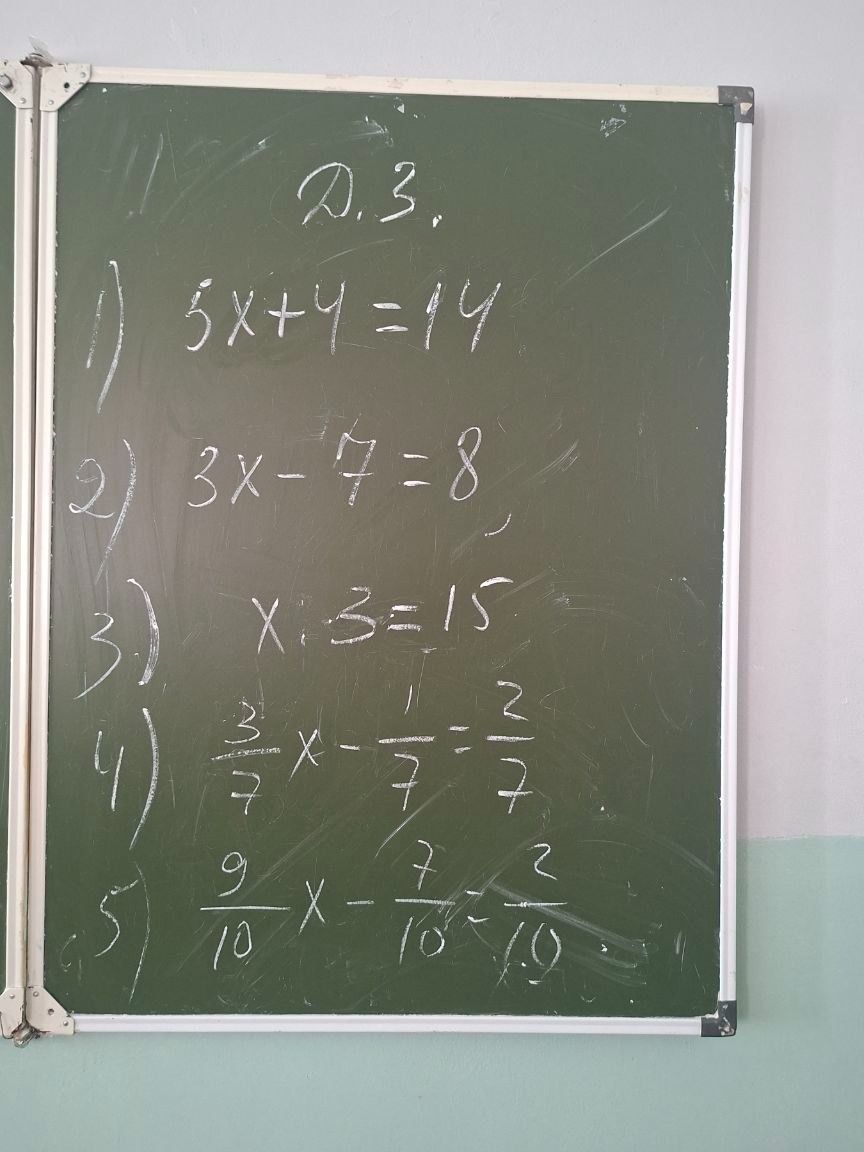 Д.З.
1) 5x+4=14
2) 3x-7=8
3.) x.3=15
4) 3/7 x - 1/7 = 2/7
5) 9/10 x - 7/10 = 2/10